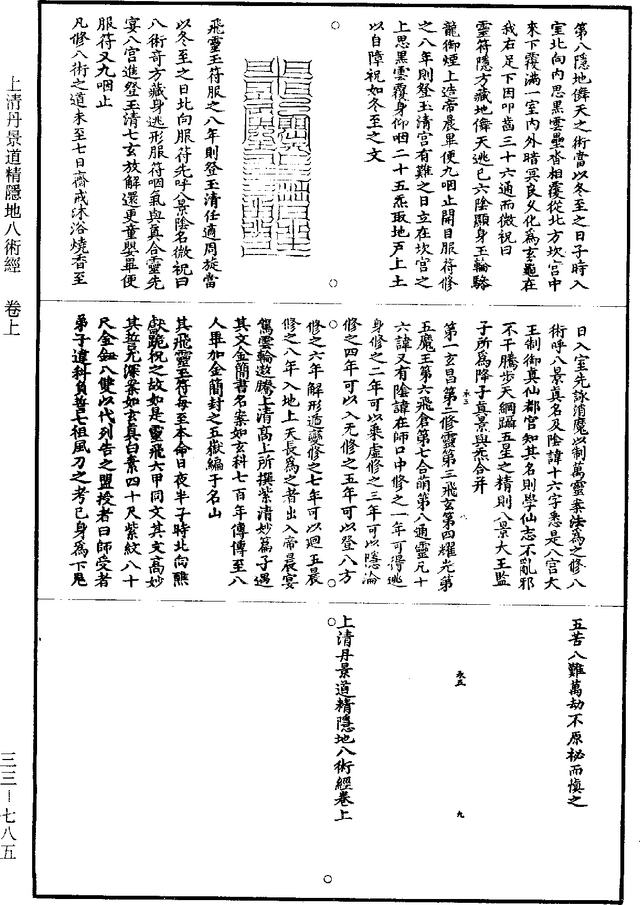 第八隱地偉天之術當以冬至之日子時入
室北向內思黑雲疊沓相覆從北方坎宮中
來下覆滿一室內外暗冥良久化為玄龜在
我右足下因叩齒三十六通而微祝曰
靈符隱方藏地偉天逃已六陰顯身玉輪駱
龍御煙上造帝晨畢便九咽止開目服符修
之八年則登玉清宮有難之日立在坎宮之
上思黑雲覆身仰咽二十五炁取地戶上土
以自障祝如冬至之文
飛靈玉符服之八年則登玉清任適周旋當
以冬至之日北向服符先呼八景陰名微祝曰
八術奇方藏身逃形服符咽氣與真合靈先
宴八宮進登玉清七玄放解還更童嬰畢便
服符又九咽止
凡修八術之道未至七日齋戒沐浴燒香至
日入室先詠消魔以制萬靈案法為之修八
術呼八景真名及陰諱十六字悉是八宮大
王制御真仙都官知其名則學仙志不亂邪
不干騰步天綱躡五星之精則八景大王監
子所為降子真景與炁合并
第一玄昌第二修靈第三飛玄第四耀光第
五魔王第六飛倉第七合萌第八通靈凡十
六諱又有陰諱在師口中修之一年可得逃
身修之二年可以乘虛修之三年可以隱淪
修之四年可以入无修之五年可以登八方
修之六年解形遁變修之七年可以迴五晨
修之八年入地上天長為之者出入帝晨宴
駕雲輪遨騰上清高上所撰紫清妙篇子遇
其文金簡書名案如玄科七百年傳傳至八
人畢加金簡封之五嶽編于名山
其飛靈玉符每至本命日夜半子時北向燕
獻跪祝之故如是靈飛六甲同文其文高妙
其誓尤深案如玄真白素四十尺紫紋八十
尺金鈕八雙以代列告之盟授者曰師受者
弟子違科負誓七祖風刀之考已身為下鬼
五苦八難萬劫不原祕而慎之
上清丹景道精隱地八術經卷上
上清丹景道精隱地八術經 卷上
三三－七八五